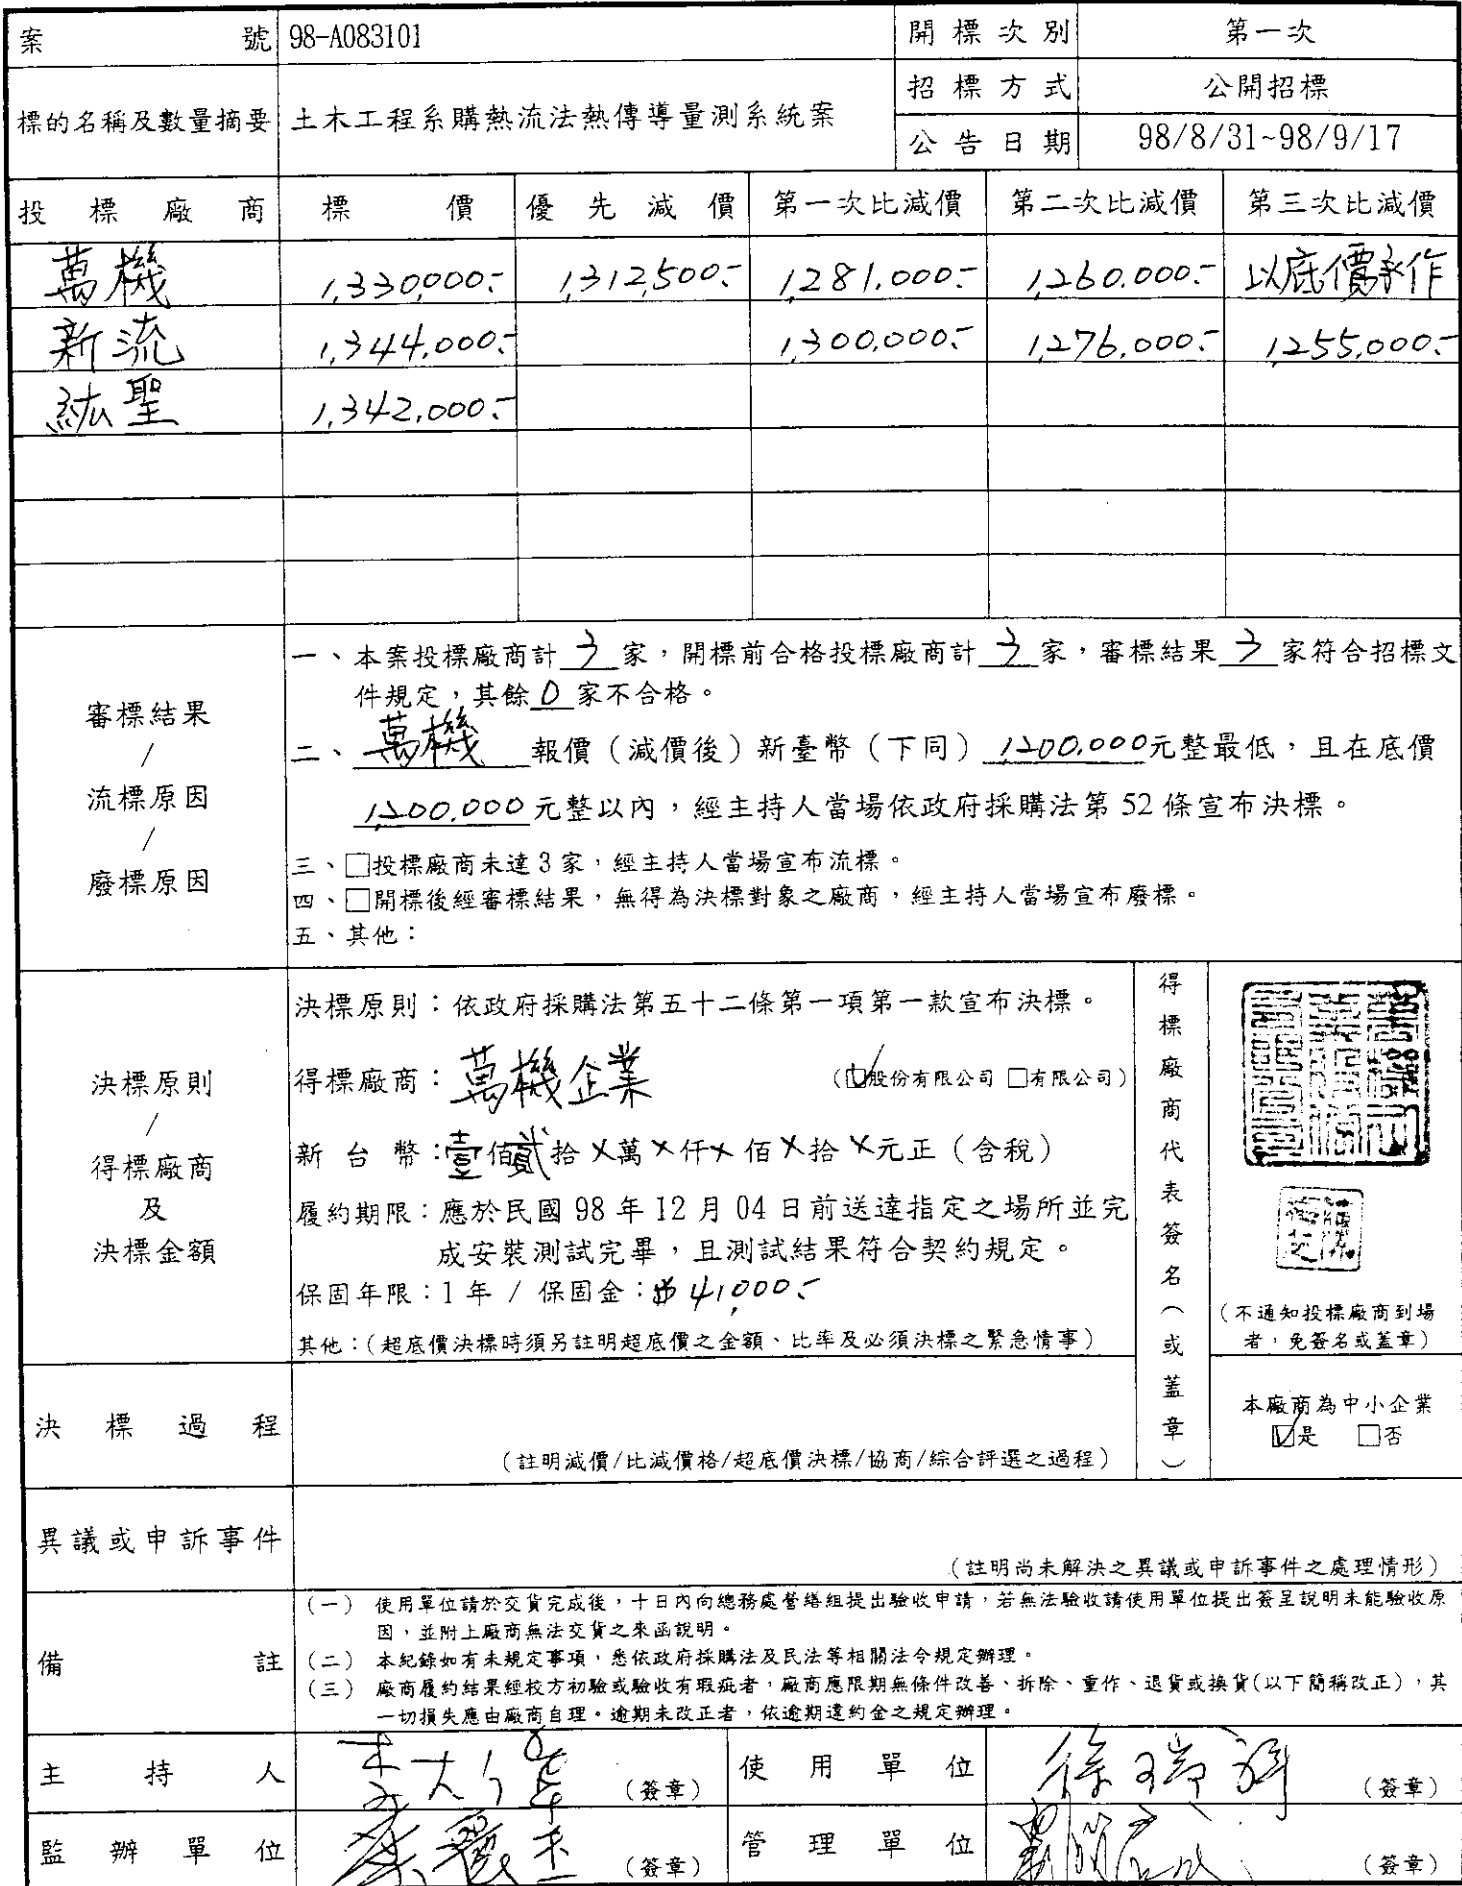 案 號 98-A083101 開標次別 第一次
標的名稱及數量摘要 土木工程系購熱流法熱傳導量測系統案 招標方式 公開招標
公告日期 98/8/31~98/9/17
投標廠商 標價 優先減價 第一次比減價 第二次比減價 第三次比減價
萬機 1,330,000.- 1,312,500.- 1,281,000.- 1,260,000.- 以底價承作
新流 1,344,000.- 1,300,000.- 1,276,000.- 1,255,000.-
紘聖 1,342,000.-
審標結果
/
流標原因
/
廢標原因
一、本案投標廠商計 3 家，開標前合格投標廠商計 3 家，審標結果 3 家符合招標文
件規定，其餘 0 家不合格。
二、萬機 報價（減價後）新臺幣（下同）1,200,000元整最低，且在底價
1,200,000元整以內，經主持人當場依政府採購法第 52 條宣布決標。
三、□投標廠商未達 3 家，經主持人當場宣布流標。
四、□開標後經審標結果，無得為決標對象之廠商，經主持人當場宣布廢標。
五、其他：
決標原則
/
得標廠商
及
決標金額
決標原則：依政府採購法第五十二條第一項第一款宣布決標。
得標廠商：萬機企業 （☑股份有限公司 □有限公司）
新台幣：壹佰貳拾×萬×仟×佰×拾×元正（含稅）
履約期限：應於民國 98 年 12 月 04 日前送達指定之場所並完
成安裝測試完畢，且測試結果符合契約規定。
保固年限：1 年 / 保固金：$41,000.-
其他：（超底價決標時須另註明超底價之金額、比率及必須決標之緊急情事）
得標廠商代表簽名（或蓋章）
（不通知投標廠商到場
者，免簽名或蓋章）
本廠商為中小企業
☑是 □否
決標過程
（註明減價/比減價格/超底價決標/協商/綜合評選之過程）
異議或申訴事件
（註明尚未解決之異議或申訴事件之處理情形）
備註
（一） 使用單位請於交貨完成後，十日內向總務處營繕組提出驗收申請，若無法驗收請使用單位提出簽呈說明未能驗收原
因，並附上廠商無法交貨之來函說明。
（二） 本紀錄如有未規定事項，悉依政府採購法及民法等相關法令規定辦理。
（三） 廠商履約結果經校方初驗或驗收有瑕疵者，廠商應限期無條件改善、拆除、重作、退貨或換貨(以下簡稱改正)，其
一切損失應由廠商自理。逾期未改正者，依逾期違約金之規定辦理。
主持人 （簽章） 使用單位 （簽章）
監辦單位 （簽章） 管理單位 （簽章）